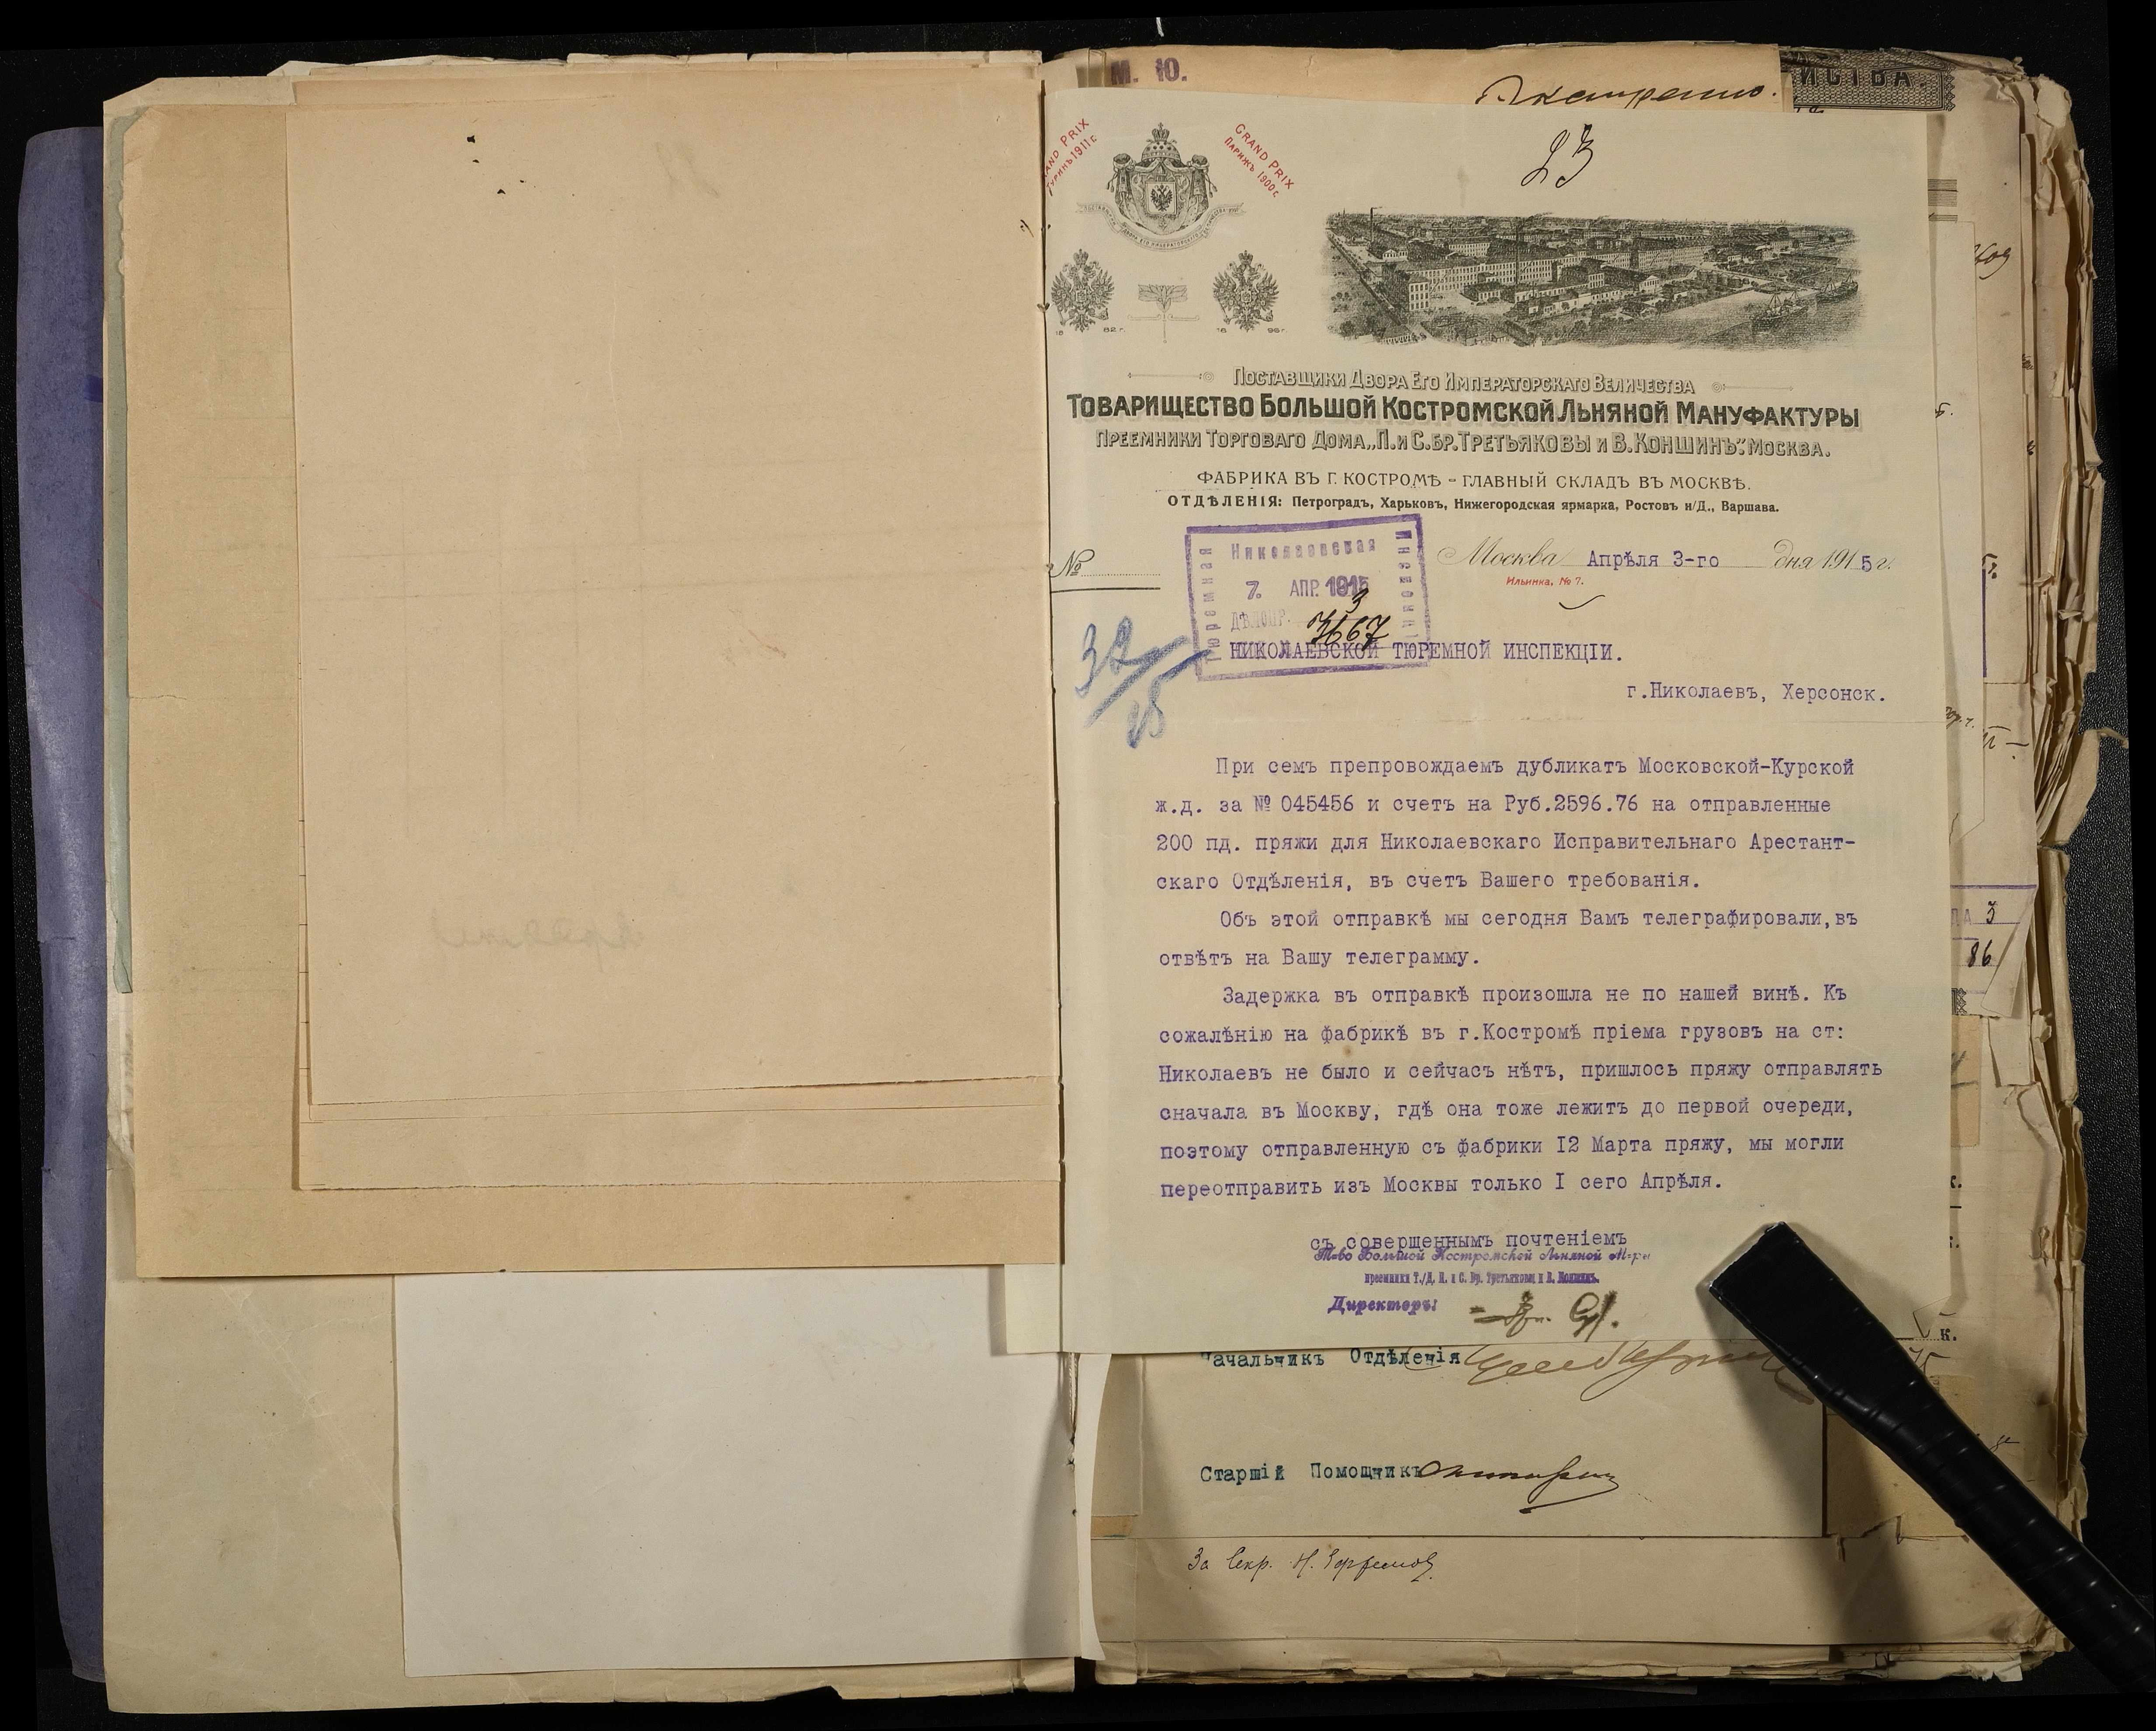 М. Ю.
Экстренно.
23
GRAND PRIX
Туринъ 1911 г.
GRAND PRIX
Парижъ 1900 г.
18 82 г.
18 96 г.
Поставщики Двора Его Императорскаго Величества
Товарищество Большой Костромской Льняной Мануфактуры
Преемники Торговаго Дома „П. и С. бр. Третьяковы и В. Коншинъ“: Москва.
ФАБРИКА ВЪ Г. КОСТРОМѢ - ГЛАВНЫЙ СКЛАДЪ ВЪ МОСКВѢ.
ОТДѢЛЕНІЯ: Петроградъ, Харьковъ, Нижегородская ярмарка, Ростовъ н/Д., Варшава.
№
Николаевская
Тюремная
7. АПР. 1915
ДѢЛОПР. 3
3667
Москва Апрѣля 3-го дня 1915 г.
Ильинка, № 7.
32/15
НИКОЛАЕВСКОЙ ТЮРЕМНОЙ ИНСПЕКЦІИ.
г.Николаевъ, Херсонск.
При семъ препровождаемъ дубликатъ Московской-Курской
ж.д. за № 045456 и счетъ на Руб.2596.76 на отправленные
200 пд. пряжи для Николаевскаго Исправительнаго Арестант-
скаго Отдѣленія, въ счетъ Вашего требованія.
Объ этой отправкѣ мы сегодня Вамъ телеграфировали,въ
отвѣтъ на Вашу телеграмму.
Задержка въ отправкѣ произошла не по нашей винѣ. Къ
сожалѣнію на фабрикѣ въ г.Костромѣ пріема грузовъ на ст:
Николаевъ не было и сейчасъ нѣтъ, пришлось пряжу отправлять
сначала въ Москву, гдѣ она тоже лежитъ до первой очереди,
поэтому отправленную съ фабрики I2 Марта пряжу, мы могли
переотправить изъ Москвы только I сего Апрѣля.
съ совершеннымъ почтеніемъ
Т-во Большой Костромской Льняной М-ры
преемники Т./Д. П. и С. Бр. Третьяковы и В. Коншинъ.
Директоръ:
Начальникъ Отдѣленія
Старшій Помощникъ
За Секр.